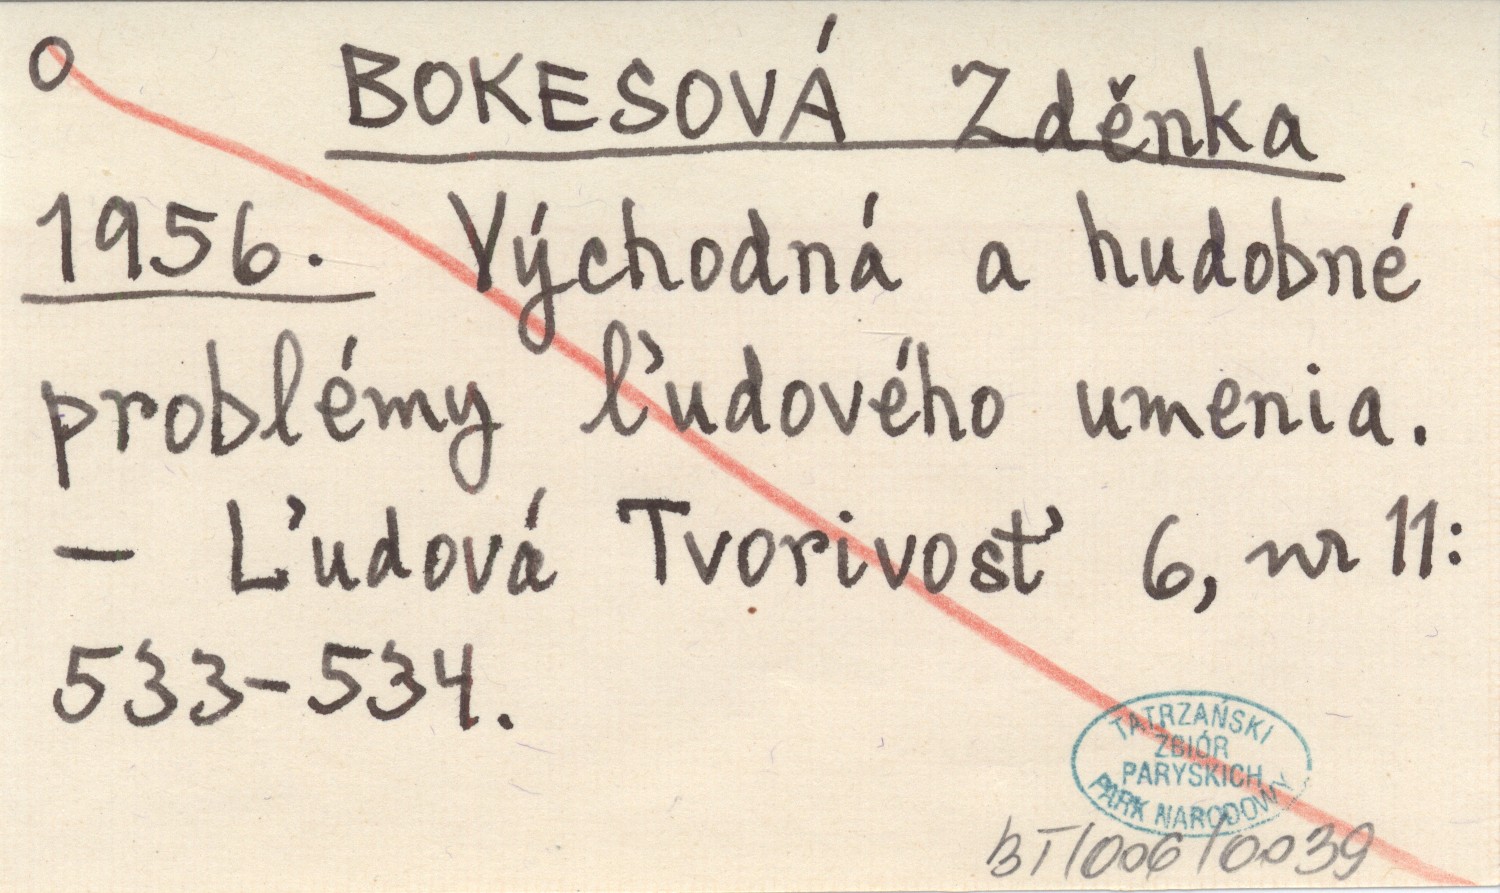 o BOKESOVÁ Zděnka
1956. Východná a hudobné
problémy ľudového umenia.
– Ľudová Tvorivosť 6, nr 11:
533–534.
TATRZAŃSKI
ZBIÓR
PARYSKICH
PARK NARODOWY
BT/006/0039